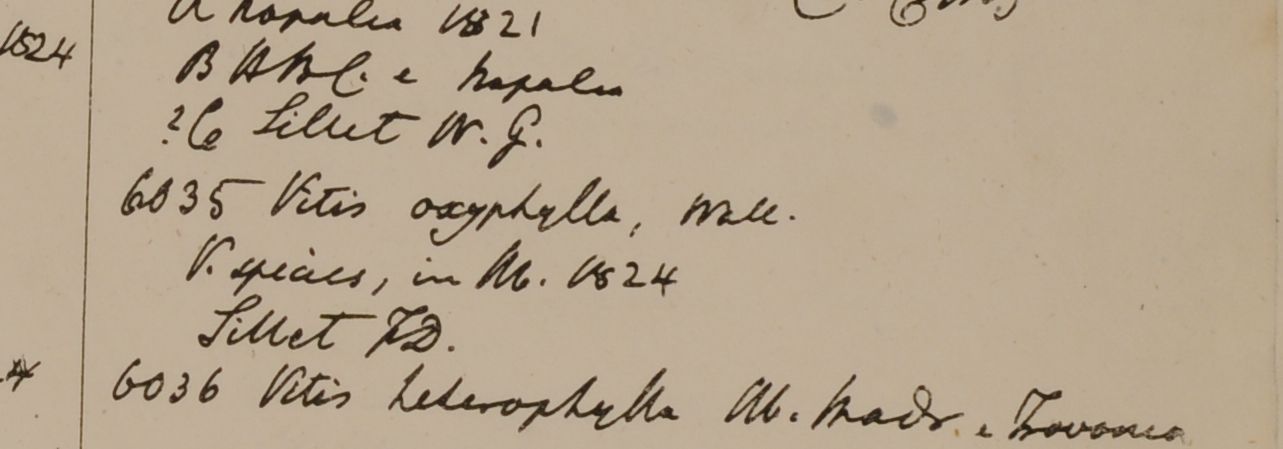 A Napalia 1821
1824
B HBC. e Napalia
? C Sillet W. G.
6035 Vitis oxyphylla, Wall.
V. species, in Hb. 1824
Sillet FD.
6036 Vitis heterophylla Hb. Madr. e Travancor